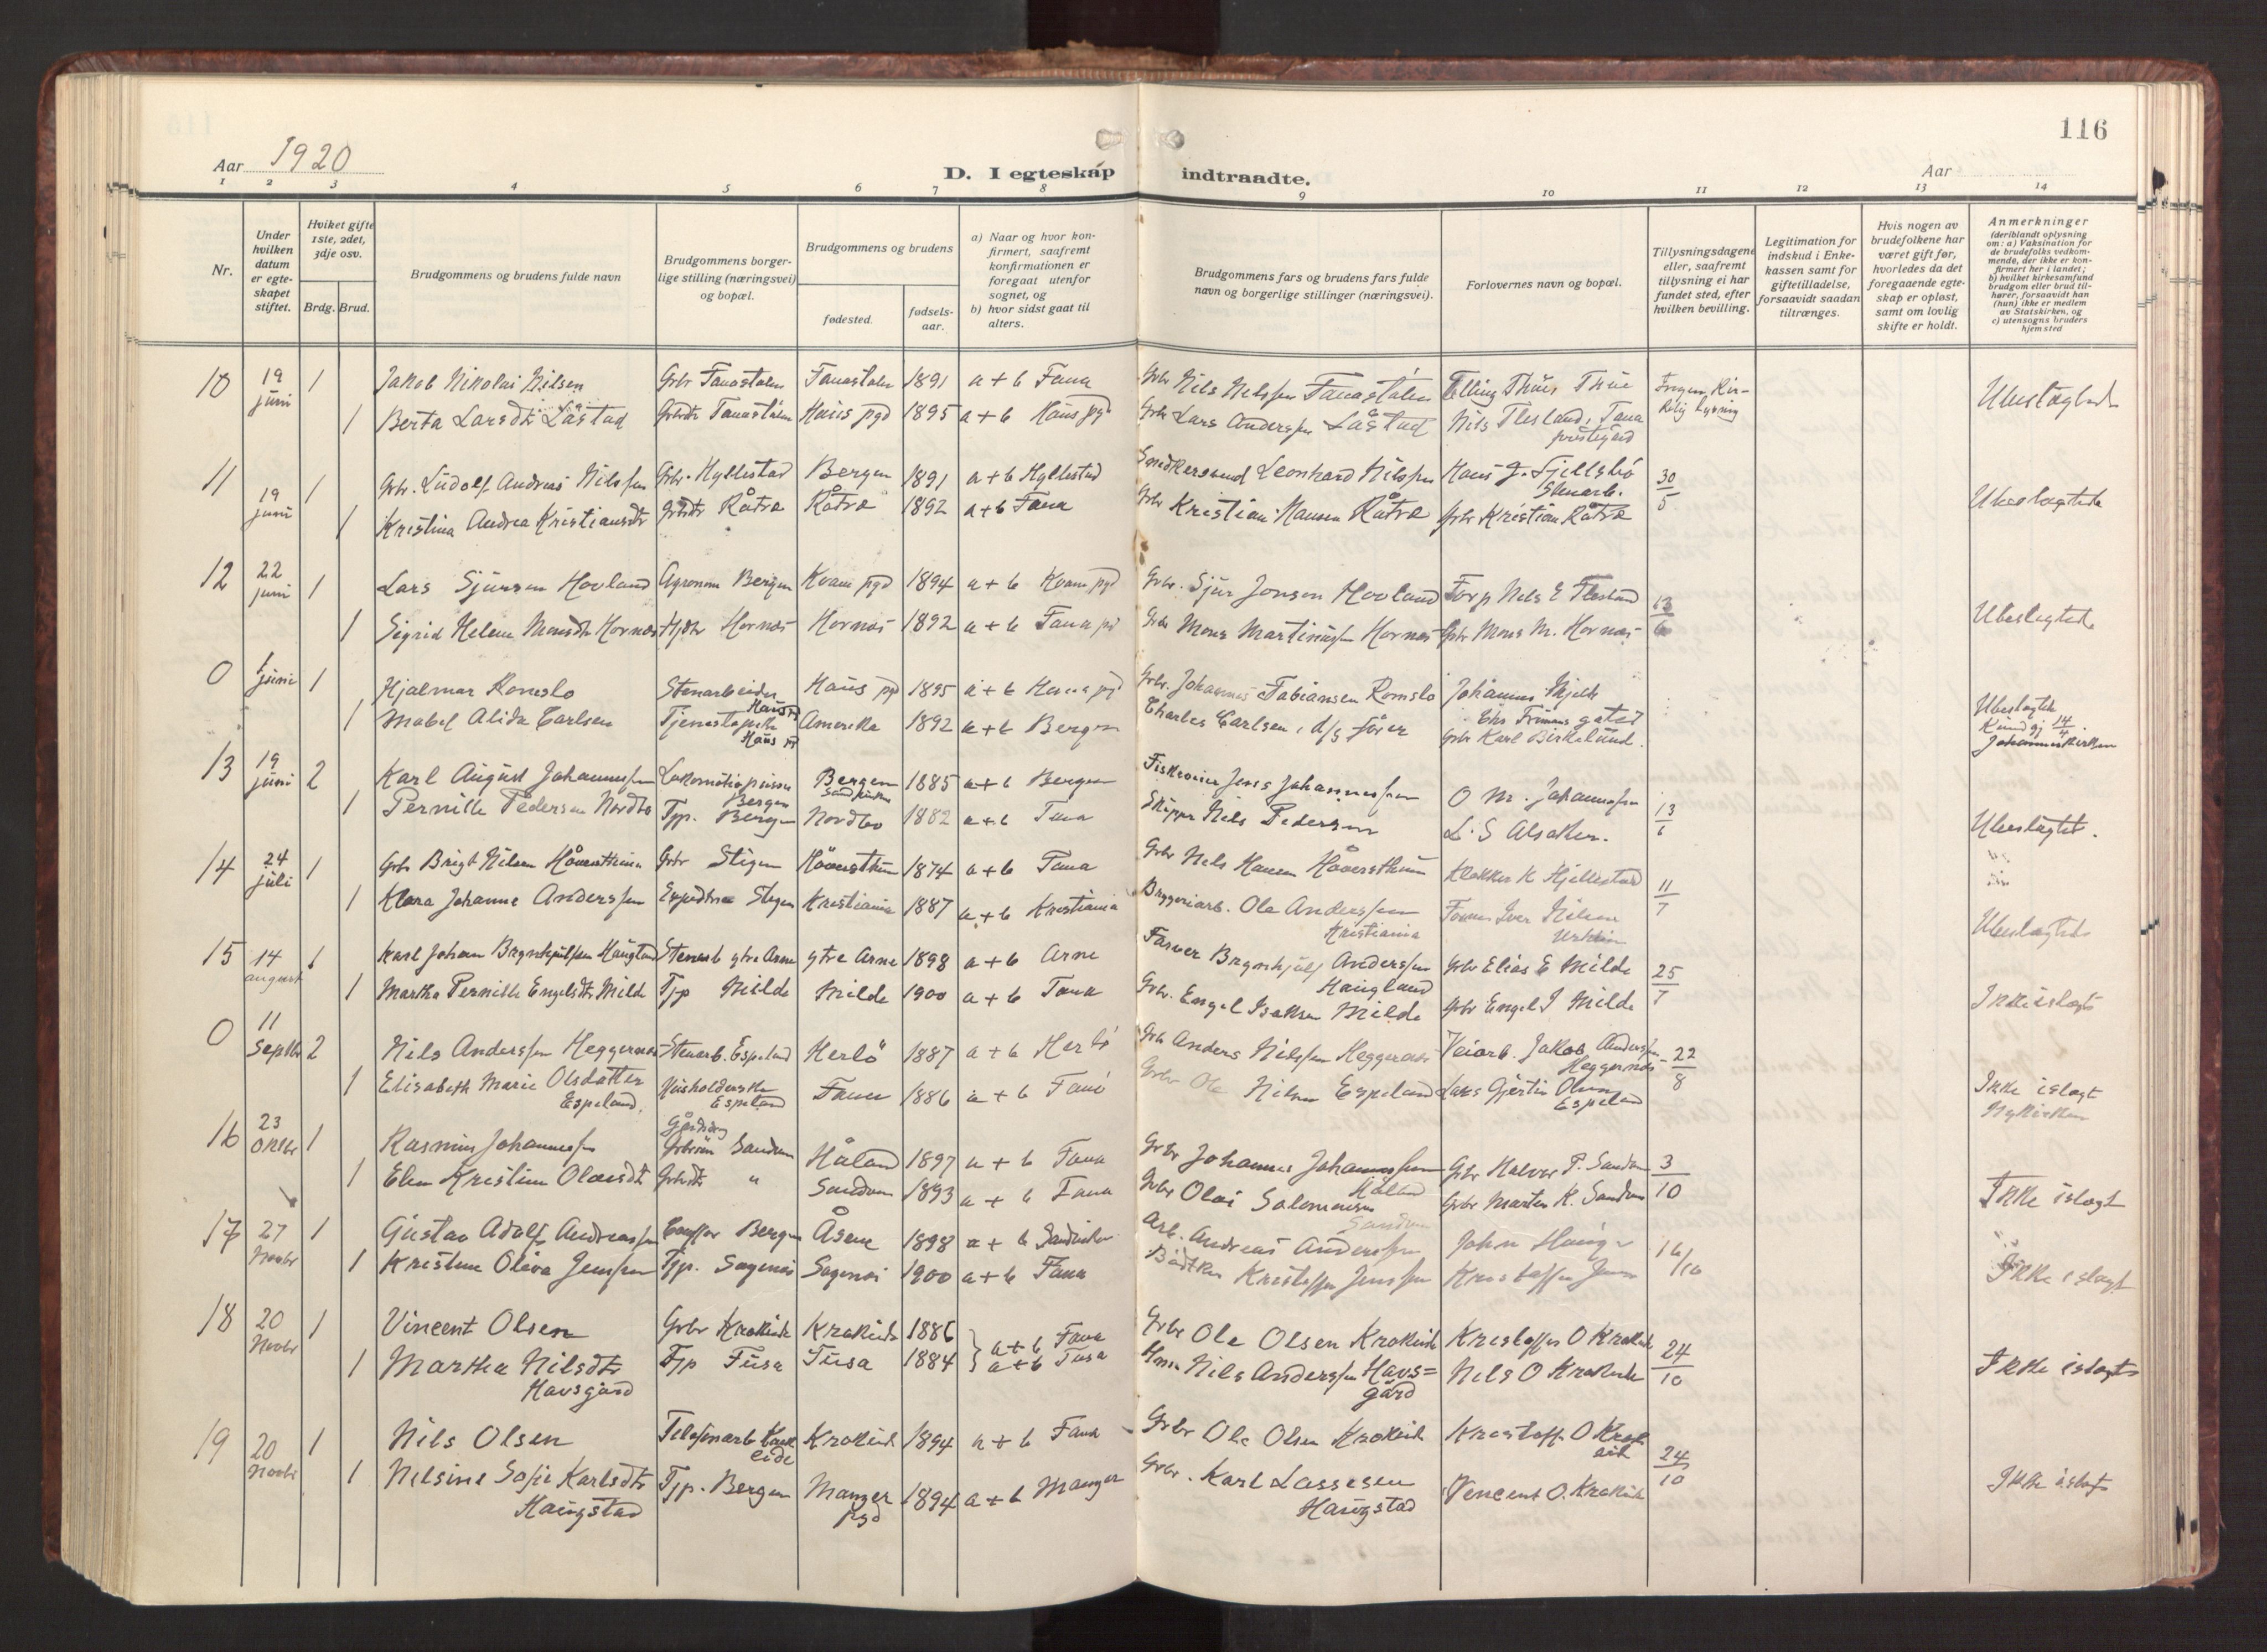 116
Aar 1920
D. I egteskap indtraadte.
Aar
1 2 3 4 5 6 7 8 9 10 11 12 13 14
Nr.
Under hvilken datum er egteskapet stiftet.
Hviket gifte 1ste, 2det, 3dje osv.
Brdg. Brud.
Brudgommens og brudens fulde navn
Brudgommens borgerlige stilling (næringsvei) og bopæl.
Brudgommens og brudens
fødested.
fødselsaar.
a) Naar og hvor konfirmert, saafremt konfirmationen er foregaat utenfor sognet, og
b) hvor sidst gaat til alters.
Brudgommens fars og brudens fars fulde navn og borgerlige stillinger (næringsvei).
Forlovernes navn og bopæl.
Tillysningsdagene eller, saafremt tillysning ei har fundet sted, efter hvilken bevilling.
Legitimation for indskud i Enkekassen samt for giftetilladelse, forsaavidt saadan tiltrænges.
Hvis nogen av brudefolkene har været gift før, hvorledes da det foregaaende egteskap er opløst, samt om lovlig skifte er holdt.
Anmerkninger
(deriblandt oplysning om: a) Vaksination for de brudefolks vedkommende, der ikke er konfirmert her i landet; b) hvilket kirkesamfund brudgom eller brud tilhører, forsaavidt han (hun) ikke er medlem av Statskirken, og c) utensogns bruders hjemsted
10 19 juni 1 Jakob Nikolai Nilsen Grbr Fanastølen Fanastølen 1891 a + b Fana Grbr Nils Nilssen Fanastølen Ingen Kirkelig lysning Ubeslægtede
1 Berta Larsdtr Låstad Fanastølen Haus pgd 1895 a + b Haus pgd Grbr Lars Anderssen Låstad Nils Flesland, Fana prestegård
11 19 juni 1 Grbr. Ludolf Andreas Nilssen Grbr. Hyllestad Bergen 1891 a + b Hyllestad Leonhard Nilssen Hans J. Fjellsbö Stenarb. 30/5 Ubeslægtede
1 Kristina Andrea Kristiansdtr Grbdtr Råtræ Råtræ 1892 a + b Fana Grbr Kristian Hansen Råtræ Grbr Kristian Råtræ
12 22 juni 1 Lars Sjursen Hovland Agronom Bergen Kvam pgd 1894 a + b Kvam pgd Grbr. Sjur Jonsen Hovland Nils E Flesland 13/6 Ubeslægtede
1 Sigrid Helene Monsdtr Hornæs Hornæs Hornæs 1892 a + b Fana Grbr Mons Martinussen Hornæs Grbr Mons M. Hornæs
0 1 juni 1 Hjalmar Romslo Stenarbeider Haus Haus pgd 1895 a + b Haus pgd Grbr. Johannes Fabiansen Romslo Johannes Mjelde Ubeslægtede
1 Mabel Alida Carlsen Tjenestepike Haus Amerika 1892 a + b Bergen Charles Carlsen, d/s fører Grbr Karl Birkelund. 14/4 Johanneskirken
13 19 juni 2 Karl August Johannessen Bergen Bergen Sandviken 1885 a + b Bergen Jens Johannessen O M. Johannessen 13/6 Ubeslægtet.
1 Pernille Pedersen Nordbø Tjp. Bergen Nordbø 1882 a + b Fana Skipper Nils Pedersen L. S Alsaker.
14 24 juli 1 Grbr Brigt Nilsen Håversthun Grbr Stigen Håversthun 1874 a + b Fana Grbr Nils Hansen Håversthun Klokker K Hjellestad 11/7 Ubeslægtede
1 Klara Johanne Anderssen Stigen Kristiania 1887 a + b Kristiania Bryggeriarb. Ole Anderssen Kristiania Iver Nilsen
15 14 august 1 Karl Johan Brynhjulfsen Haugland Stenarb ytre Arne ytre Arne 1898 a + b Arne Farver Brynhjulf Anderssen Haugland Grbr Elias E Milde 25/7 Ikke islægt
1 Martha Pernille Engelsdtr Milde Tjp Milde Milde 1900 a + b Fana Grbr. Engel Isaksen Milde Grbr Engel I Milde
0 11 Septbr 2 Nils Anderssen Heggernæs Stenarb. Espeland Herlö 1887 a + b Herlö Grbr Anders Nilssen Heggernæs Veiarb. Jakob Anderssen Heggernæs 22/8 Ikke islægt Nykirken
1 Elisabeth Marie Olsdatter Espeland. Husholderske Espeland Fana 1886 a + b Fana Grbr Ole Nilsen Espeland Lars Gjertin Olsen Espeland
16 23 Oktbr 1 Rasmus Johannessen Sandven Håland 1897 a + b Fana Grbr Johannes Johannessen Håland Grbr Halvor P. Sandven 3/10 Ikke islægt
1 Elen Kristine Olaisdtr Grbdtr " Sandven 1893 a + b Fana Grbr Olai Salomonsen Sandven Grbr Marten K. Sandven
17 27 Novbr 1 Gustav Adolf Andreassen Bergen Åsene 1898 a + b Sandviken Arb. Andreas Anderssen John Hauge 16/10 Ikke islægt
1 Kristine Oliva Jenssen Tjp. Sagenæs Sagenæs 1900 a + b Fana Kristoffer Jenssen Kristoffer Jenssen
18 20 Novbr 1 Vincent Olsen Grbr Krokeide Krokeide 1886 a + b Fana Grbr Ole Olsen Krokeide Kristoffer O Krokeide 24/10 Ikke islægt
1 Martha Nilsdtr Havsgård Tjp Fusa Fusa 1884 a + b Fusa Nils Anderssen Havsgård Nils O Krokeide
19 20 Novbr 1 Nils Olsen Telefonarb Krokeide Krokeide 1894 a + b Fana Grbr Ole Olsen Krokeide Kristoffer O Krokeide 24/10 Ikke islægt
1 Nilsine Sofie Karlsdtr Haugstad Tjp. Bergen Manger pgd 1894 a + b Manger Grbr. Karl Lassesen Haugstad Vincent O. Krokeide